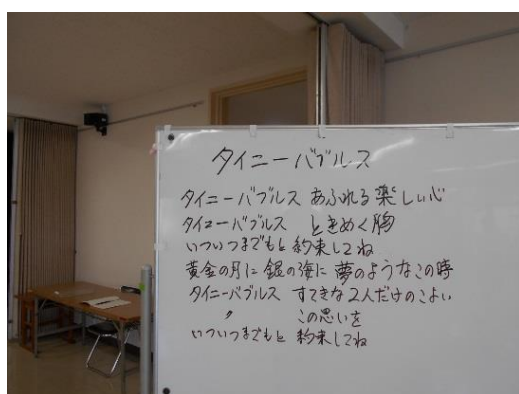 タイニーバブルス
タイニーバブルス あふれる楽しい心
タイニーバブルス ときめく胸
いついつまでもと約束してね
黄金の月に 銀の海に 夢のようなこの時
タイニーバブルス すてきな2人だけのこよい
〃 この思いを
いついつまでもと 約束してね